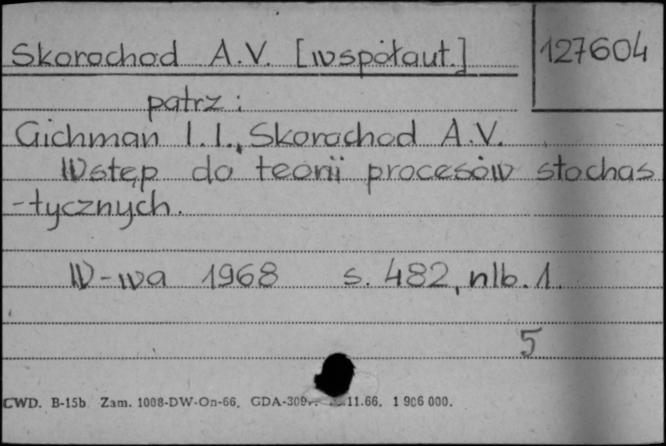 Skorochod A.V. [współaut.] 127604
patrz:
Gichman I.I., Skorochod A.V.
Wstęp do teorii procesów stochas
-tycznych.
W-wa 1968 s. 482, nlb. 1.
5
CWD. B-15b Zam. 1008-DW-On-66. GDA- .11.66. 1 906 000.